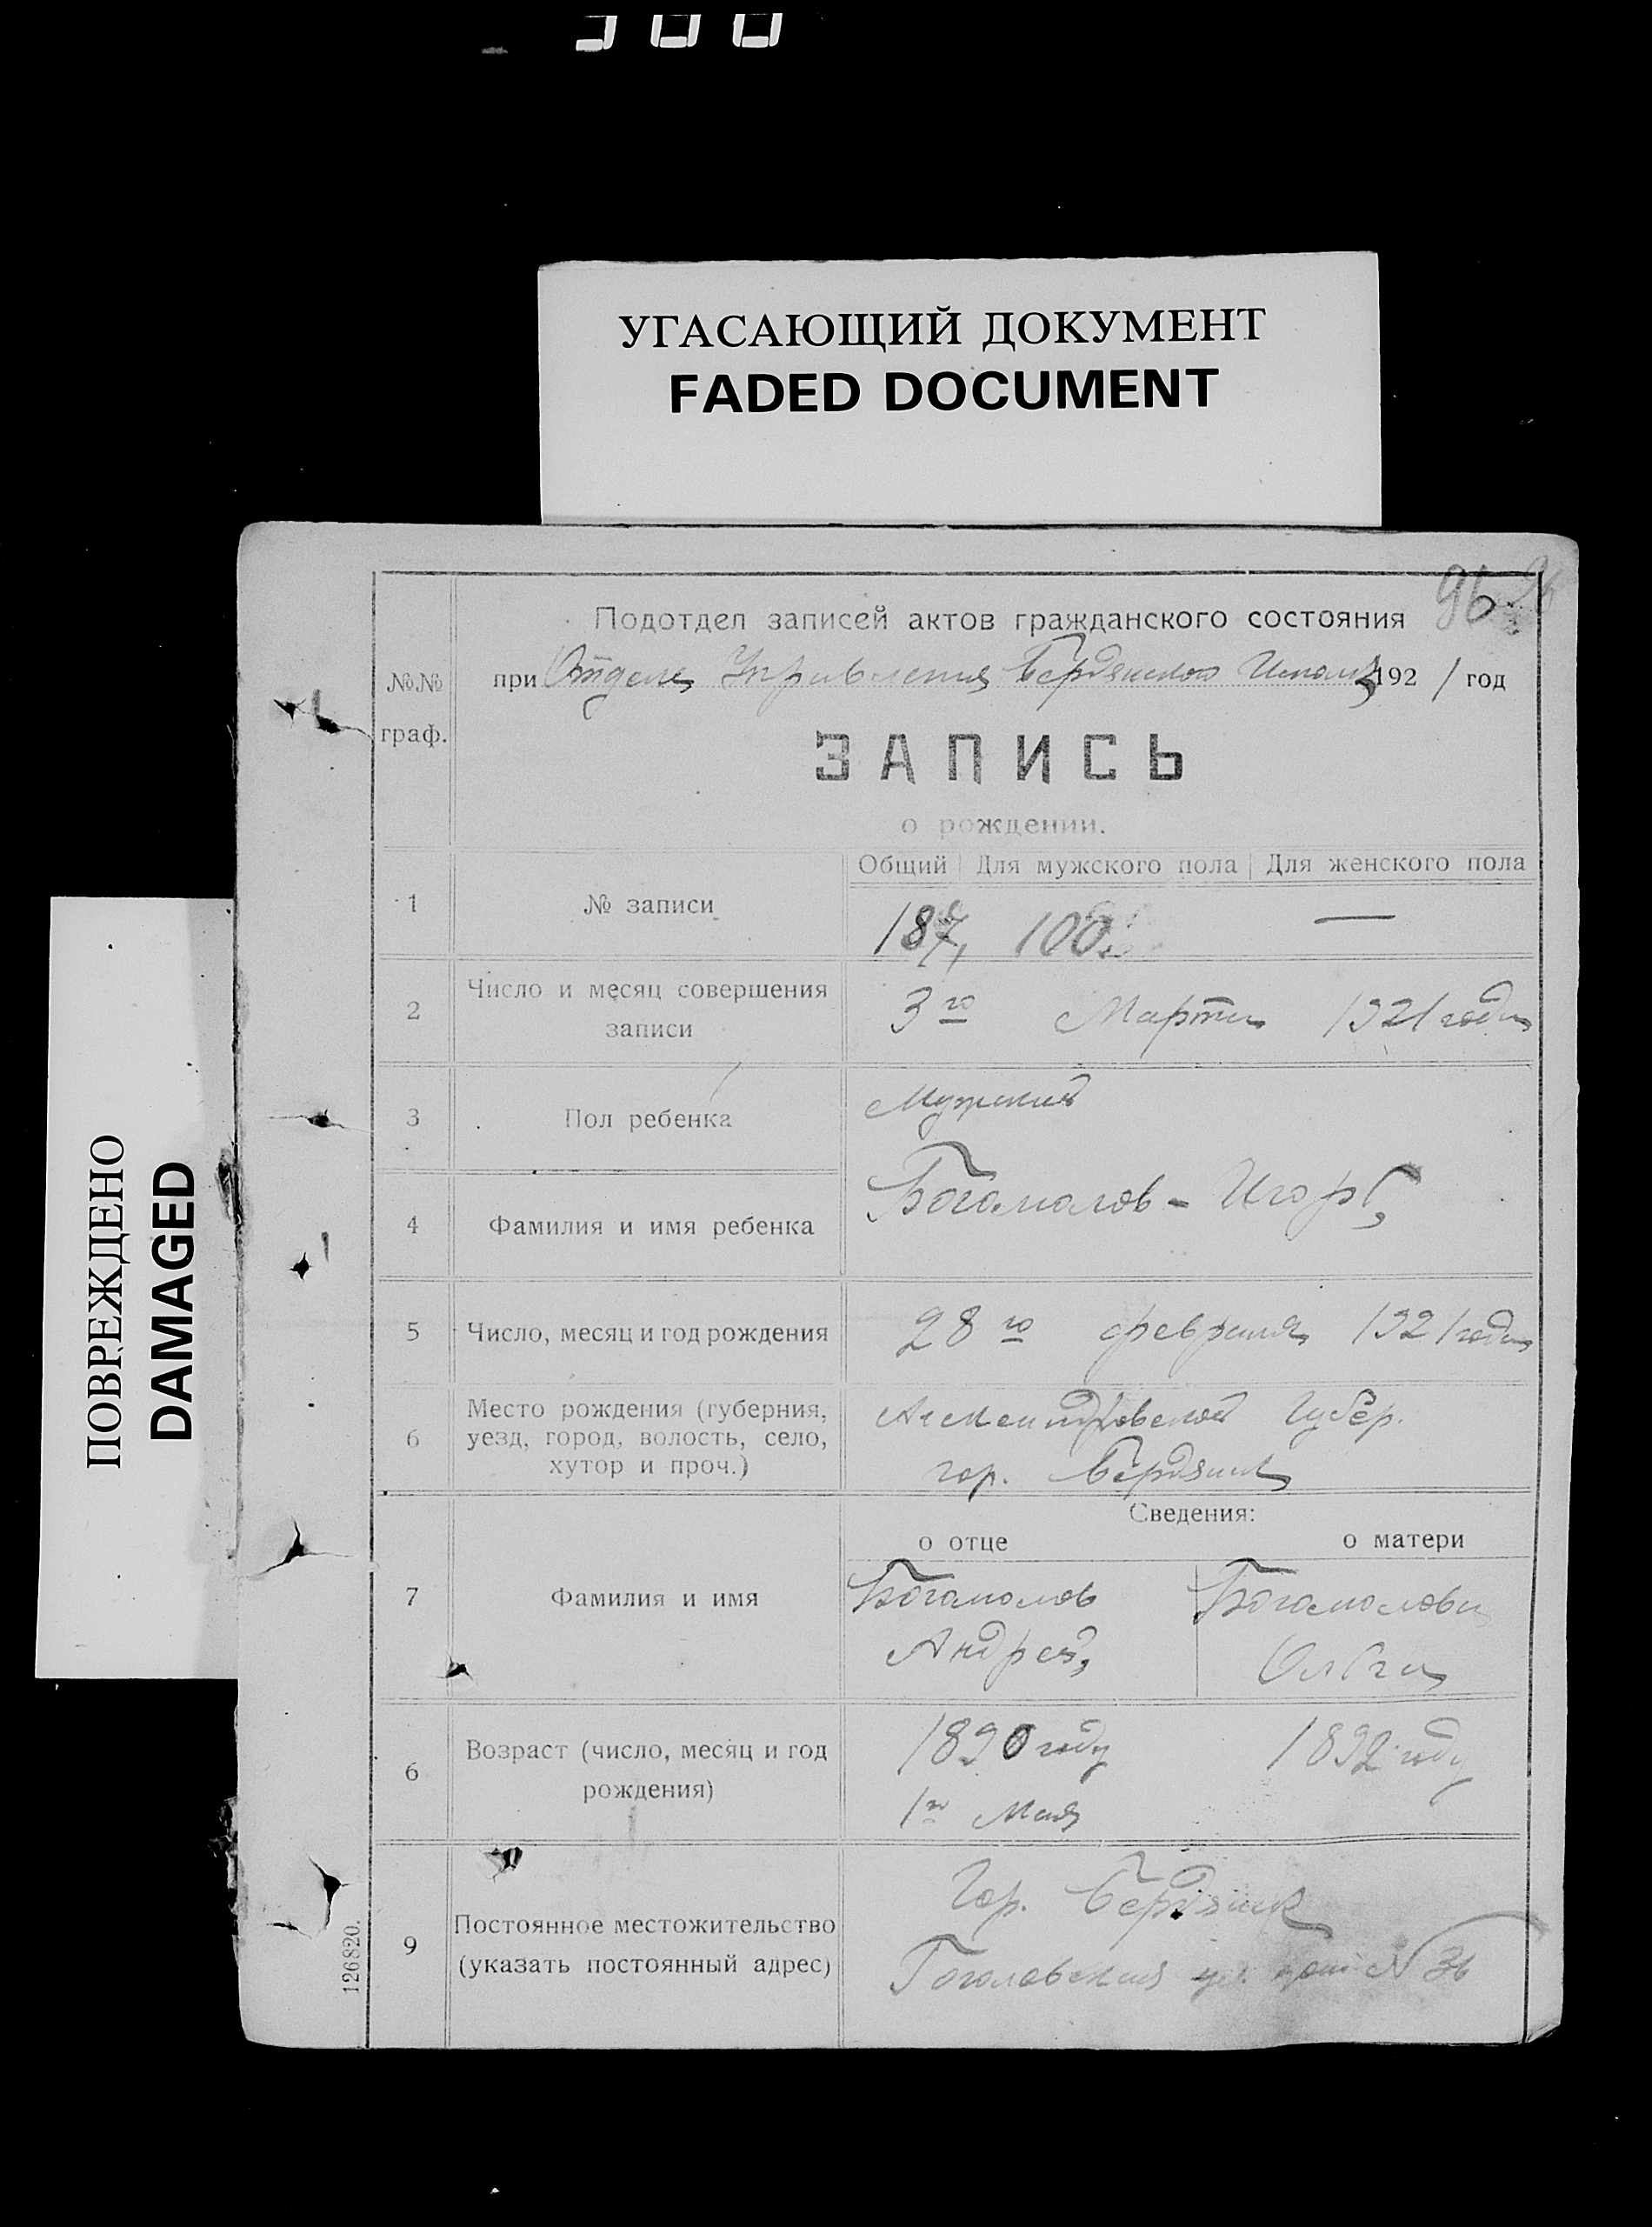 УГАСАЮЩИЙ ДОКУМЕНТ
FADED DOCUMENT
ПОВРЕЖДЕНО
DAMAGED
96
Подотдел записей актов гражданского состояния
№№ граф.
при Отделе Управления Бердянского Исполк 1921 год
ЗАПИСЬ
о рождении.
Общий Для мужского пола Для женского пола
1 № записи 187, 100 —
2 Число и месяц совершения записи 3го Марта 1921 года
3 Пол ребенка Мужский
4 Фамилия и имя ребенка Богомолов - Игорь,
5 Число, месяц и год рождения 28го февраля 1921 года
6 Место рождения (губерния, уезд, город, волость, село, хутор и проч.) Александровской Губер.
гор. Бердянск
Сведения:
о отце о матери
7 Фамилия и имя Богомолов Богомолова
Андрей, Ольга
6 Возраст (число, месяц и год рождения) 1890 году 1892 году
1го Мая
9 Постоянное местожительство (указать постоянный адрес) Гор. Бердянск
Гоголевская ул. дом № 36
126820.